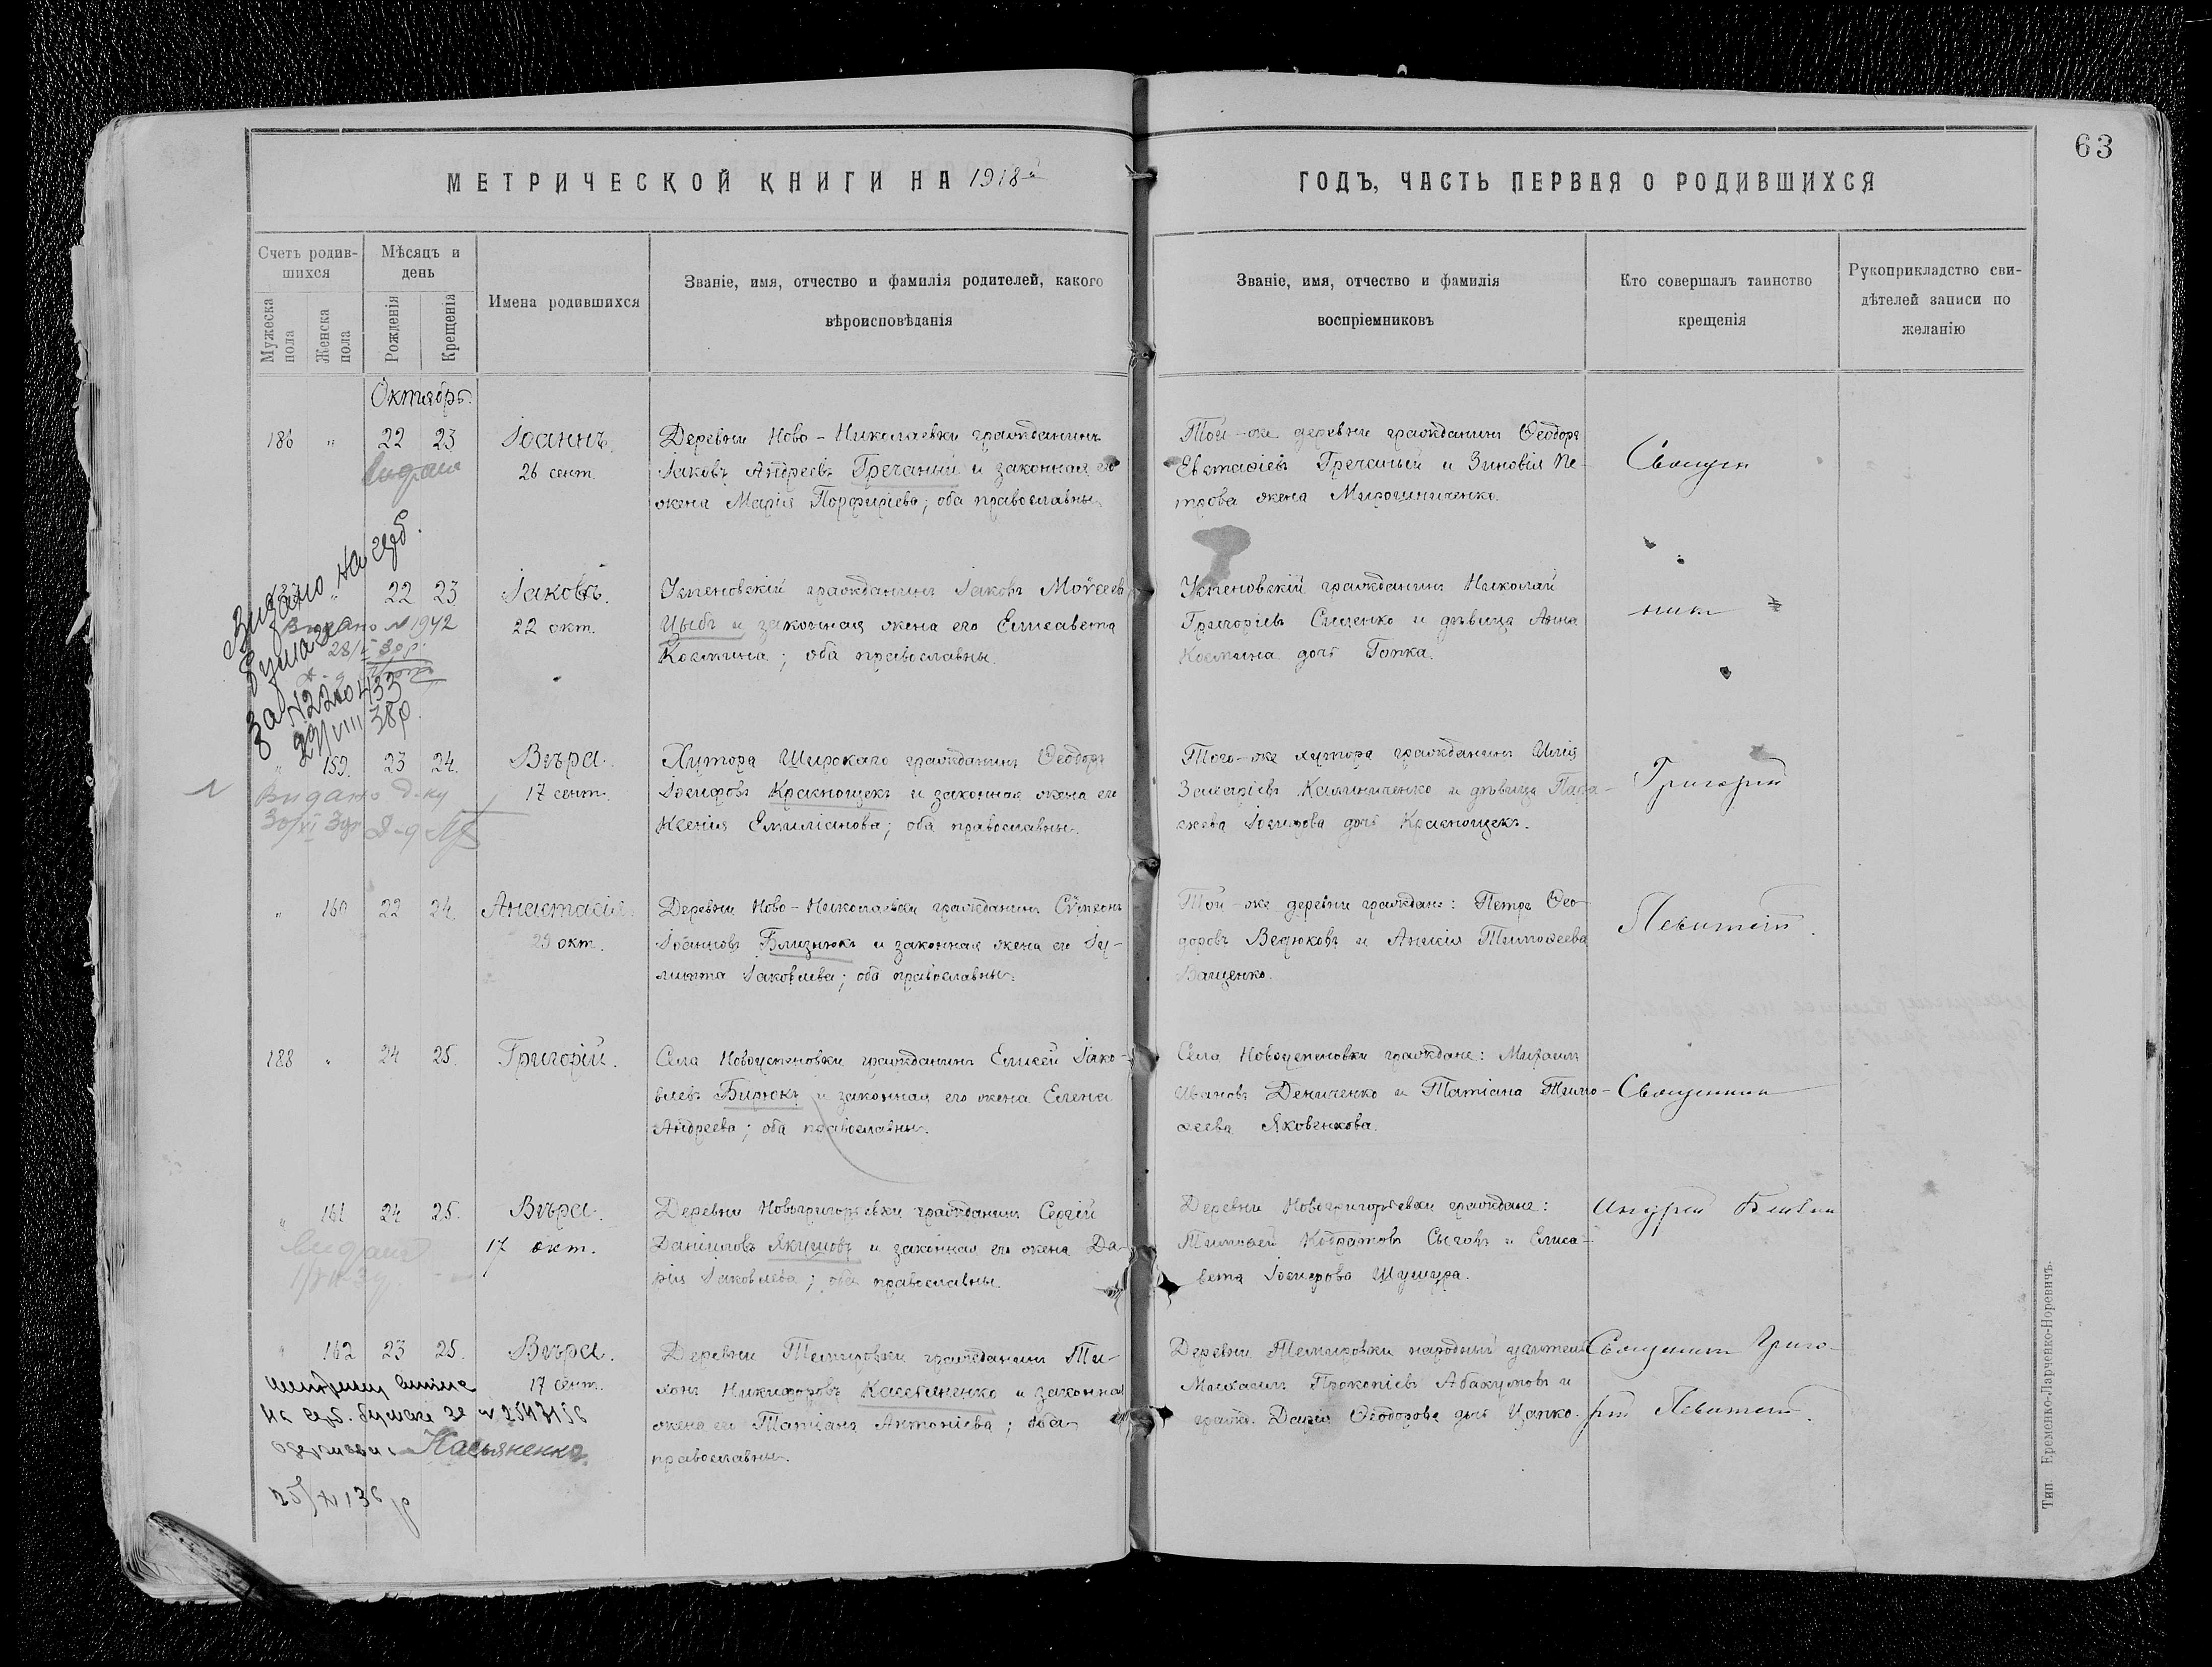 63
МЕТРИЧЕСКОЙ КНИГИ НА 1918й
ГОДЪ, ЧАСТЬ ПЕРВАЯ О РОДИВШИХСЯ
Счетъ родив-
шихся
Мужеска пола
Женска пола
Мѣсяцъ и
день
Рожденія
Крещенія
Имена родившихся
Званіе, имя, отчество и фамилія родителей, какого
вѣроисповѣданія
Званіе, имя, отчество и фамилія
воспріемниковъ
Кто совершалъ таинство
крещенія
Рукоприкладство сви-
дѣтелей записи по
желанію
Октябрь.
186 " 22 23 Іоаннъ.
26 сент.
Деревни Ново-Николаевки гражданинъ
Іаковъ Андреевъ Гречаный и законная его
жена Марія Порфиріева; оба православны.
Той-же деревни гражданинъ Ѳеодоръ
Евстафіевъ Гречаный и Зиновія Пе-
трова жена Мирошниченко.
Священ
Видано на герб.
" 22 23 Іаковъ.
22 окт.
Видано № 1942
28/I 30 р.
29/VIII 38 р.
Успеновскій гражданинъ Іаковъ Моѵсеевъ
Цыбъ и законная жена его Елисавета
Космина; оба православны.
Успеновскій гражданинъ Николай
Григоріевъ Сиденко и дѣвица Анна
Космина дочь Гопка.
никъ
" 159. 23 24. Вѣра.
17 сент.
Видано д-ку
Хутора Широкаго гражданинъ Ѳеодоръ
Іосифовъ Краснощекъ и законная жена его
Ксенія Емиліанова; оба православны.
Того-же хутора гражданинъ Илія
Захаріевъ Калиниченко и дѣвица Пара-
скева Іосифова дочь Краснощекъ.
Григорій
" 160 22 24. Анастасія.
29 окт.
Деревни Ново-Николаевки гражданинъ Сѵмеонъ
Іоанновъ Близнюкъ и законная жена его Іу-
литта Іаковлева; оба православны.
Той-же деревни граждане: Петръ Ѳео-
доровъ Ведюковъ и Анисія Тимоѳеева
Ващенко.
Левитскій.
188 " 24 25. Григорій.
Села Новоуспеновки гражданинъ Елисей Іако-
влевъ Бирюкъ и законная его жена Елена
Андреева; оба православны.
Села Новоуспеновки граждане: Михаилъ
Ивановъ Дениченко и Татіана Тимо-
ѳеева Яковенкова.
Священникъ
" 161 24 25. Вѣра.
17 окт.
Деревни Новогригорьевки гражданинъ Сергій
Даніиловъ Якушовъ и законная его жена Да-
рія Іаковлева; оба православны.
Деревни Новогригорьевки граждане:
Тимоѳей Кодратовъ Сысовъ и Елиса-
вета Іосифова Шушура.
" 162 23 25. Вѣра.
17 сент.
на герб. бумаге за № 2547156
Касьяненко.
Деревни Темировки гражданинъ Ти-
хонъ Никифоровъ Касьяненко и законная
жена его Татіана Антоніева; оба
православны.
Деревни Темировки народный учитель
Михаилъ Прокопіевъ Абакумовъ и
гражд. Дарія Ѳеодорова дочь Цапко.
Священникъ Григо-
рій Левитскій.
Тип Еременко-Ларченко-Норевичъ.